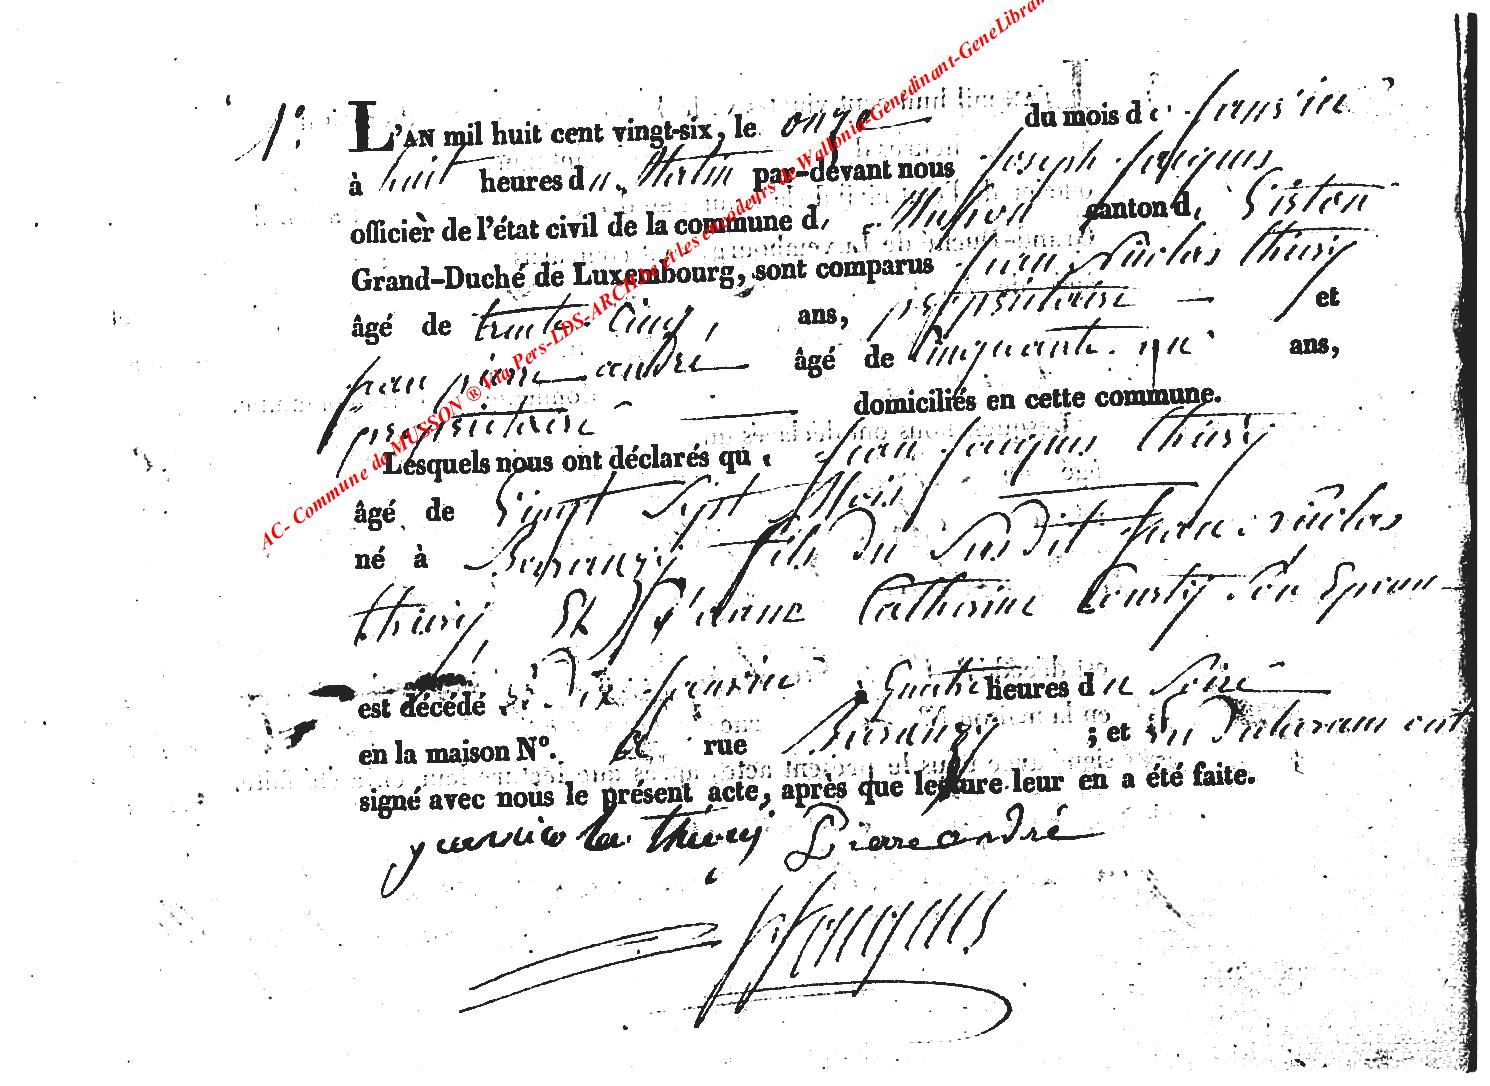 1º L'AN mil huit cent vingt-six, le onze du mois de Janvier
à huit heures du Matin par-devant nous Joseph Jacques
officièr de l'état civil de la commune de Musson canton de Virton
Grand-Duché de Luxembourg, sont comparus Jean Nicolas thiery
âgé de trente-Cinq ans, propriétaire et
jean pierre andré âgé de Cinquante-un ans,
propriétaire domiciliés en cette commune.
Lesquels nous ont déclarés qu Jean Jacques thiery
âgé de Vingt Sept Mois
né à Baranzy fils du Susdit Jean-Nicolas
thiery Et Catherine son Epouse
est décédé le Dix Janvier à Quatre heures du Soir
en la maison Nº. rue Baranzy ; et les Declarans ont
signé avec nous le présent acte, après que lecture leur en a été faite.
thiery Pierre andré
J Jacques
AC- Commune de MUSSON ® Vita Pers-LDS-ARCH et les encodeurs de Wallonia-Genedinant-GeneLibran